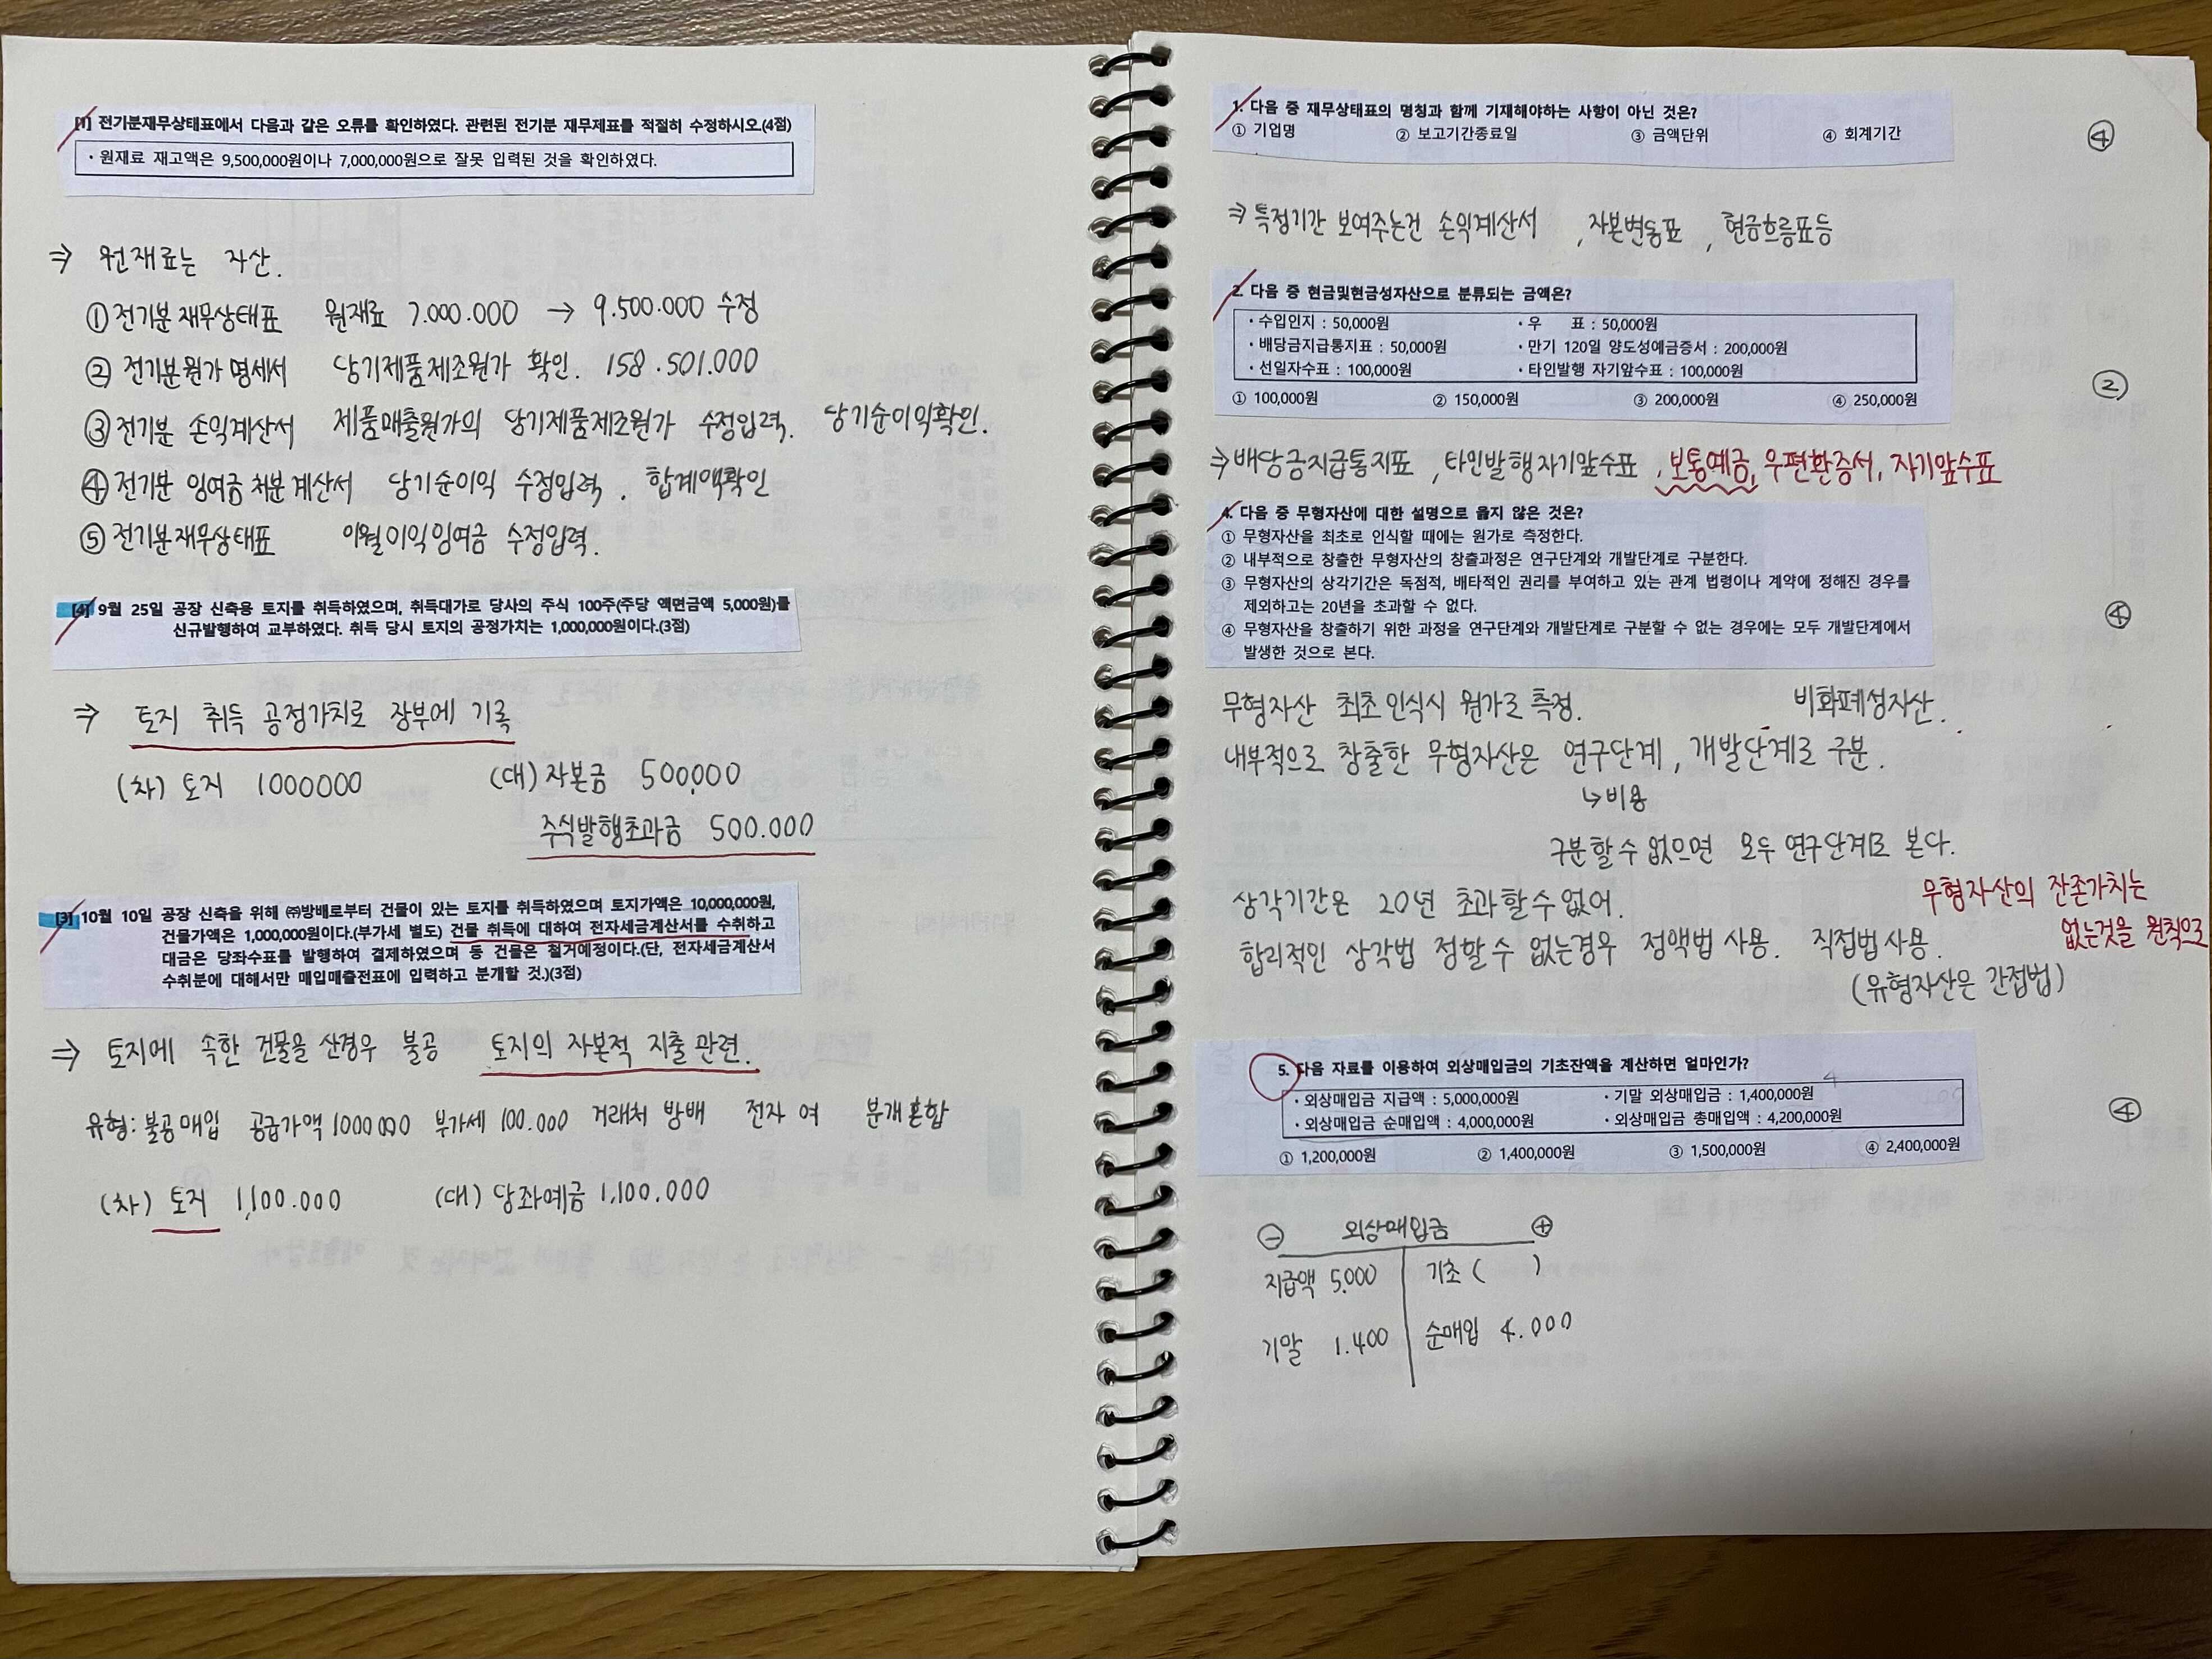 [1] 전기분재무상태표에서 다음과 같은 오류를 확인하였다. 관련된 전기분 재무제표를 적절히 수정하시오.(4점)
· 원재료 재고액은 9,500,000원이나 7,000,000원으로 잘못 입력된 것을 확인하였다.
⇒ 원재료는 자산.
① 전기분재무상태표 원재료 7.000.000 → 9.500.000 수정
② 전기분원가명세서 당기제품제조원가 확인. 158.501.000
③ 전기분 손익계산서 제품매출원가의 당기제품제조원가 수정입력. 당기순이익확인.
④ 전기분 잉여금처분계산서 당기순이익 수정입력. 합계액확인
⑤ 전기분재무상태표 이월이익잉여금 수정입력.
[4] 9월 25일 공장 신축용 토지를 취득하였으며, 취득대가로 당사의 주식 100주(주당 액면금액 5,000원)를
신규발행하여 교부하였다. 취득 당시 토지의 공정가치는 1,000,000원이다.(3점)
⇒ 토지 취득 공정가치로 장부에 기록
(차) 토지 1000000 (대) 자본금 500,000
주식발행초과금 500.000
[3] 10월 10일 공장 신축을 위해 ㈜방배로부터 건물이 있는 토지를 취득하였으며 토지가액은 10,000,000원,
건물가액은 1,000,000원이다.(부가세 별도) 건물 취득에 대하여 전자세금계산서를 수취하고
대금은 당좌수표를 발행하여 결제하였으며 동 건물은 철거예정이다.(단, 전자세금계산서
수취분에 대해서만 매입매출전표에 입력하고 분개할 것.)(3점)
⇒ 토지에 속한 건물을 산경우 불공 토지의 자본적 지출 관련.
유형: 불공매입 공급가액 1000000 부가세 100.000 거래처 방배 전자 여 분개 혼합
(차) 토지 1,100.000 (대) 당좌예금 1,100,000
1. 다음 중 재무상태표의 명칭과 함께 기재해야하는 사항이 아닌 것은?
① 기업명 ② 보고기간종료일 ③ 금액단위 ④ 회계기간
④
⇒ 특정기간 보여주는건 손익계산서, 자본변동표, 현금흐름표등
2. 다음 중 현금및현금성자산으로 분류되는 금액은?
· 수입인지 : 50,000원 · 우 표 : 50,000원
· 배당금지급통지표 : 50,000원 · 만기 120일 양도성예금증서 : 200,000원
· 선일자수표 : 100,000원 · 타인발행 자기앞수표 : 100,000원
① 100,000원 ② 150,000원 ③ 200,000원 ④ 250,000원
②
⇒ 배당금지급통지표, 타인발행자기앞수표, 보통예금, 우편환증서, 자기앞수표
4. 다음 중 무형자산에 대한 설명으로 옳지 않은 것은?
① 무형자산을 최초로 인식할 때에는 원가로 측정한다.
② 내부적으로 창출한 무형자산의 창출과정은 연구단계와 개발단계로 구분한다.
③ 무형자산의 상각기간은 독점적, 배타적인 권리를 부여하고 있는 관계 법령이나 계약에 정해진 경우를
제외하고는 20년을 초과할 수 없다.
④ 무형자산을 창출하기 위한 과정을 연구단계와 개발단계로 구분할 수 없는 경우에는 모두 개발단계에서
발생한 것으로 본다.
④
무형자산 최초인식시 원가로 측정. 비화폐성자산.
내부적으로 창출한 무형자산은 연구단계, 개발단계로 구분.
↳ 비용
구분할 수 없으면 모두 연구단계로 본다.
상각기간은 20년 초과할수없어.
무형자산의 잔존가치는
없는것을 원칙으로
합리적인 상각법 정할 수 없는경우 정액법 사용. 직접법 사용.
(유형자산은 간접법)
5. 다음 자료를 이용하여 외상매입금의 기초잔액을 계산하면 얼마인가?
· 외상매입금 지급액 : 5,000,000원 · 기말 외상매입금 : 1,400,000원
· 외상매입금 순매입액 : 4,000,000원 · 외상매입금 총매입액 : 4,200,000원
① 1,200,000원 ② 1,400,000원 ③ 1,500,000원 ④ 2,400,000원
④
⊖ 외상매입금 ⊕
지급액 5,000 기초 ( )
기말 1.400 순매입 4.000